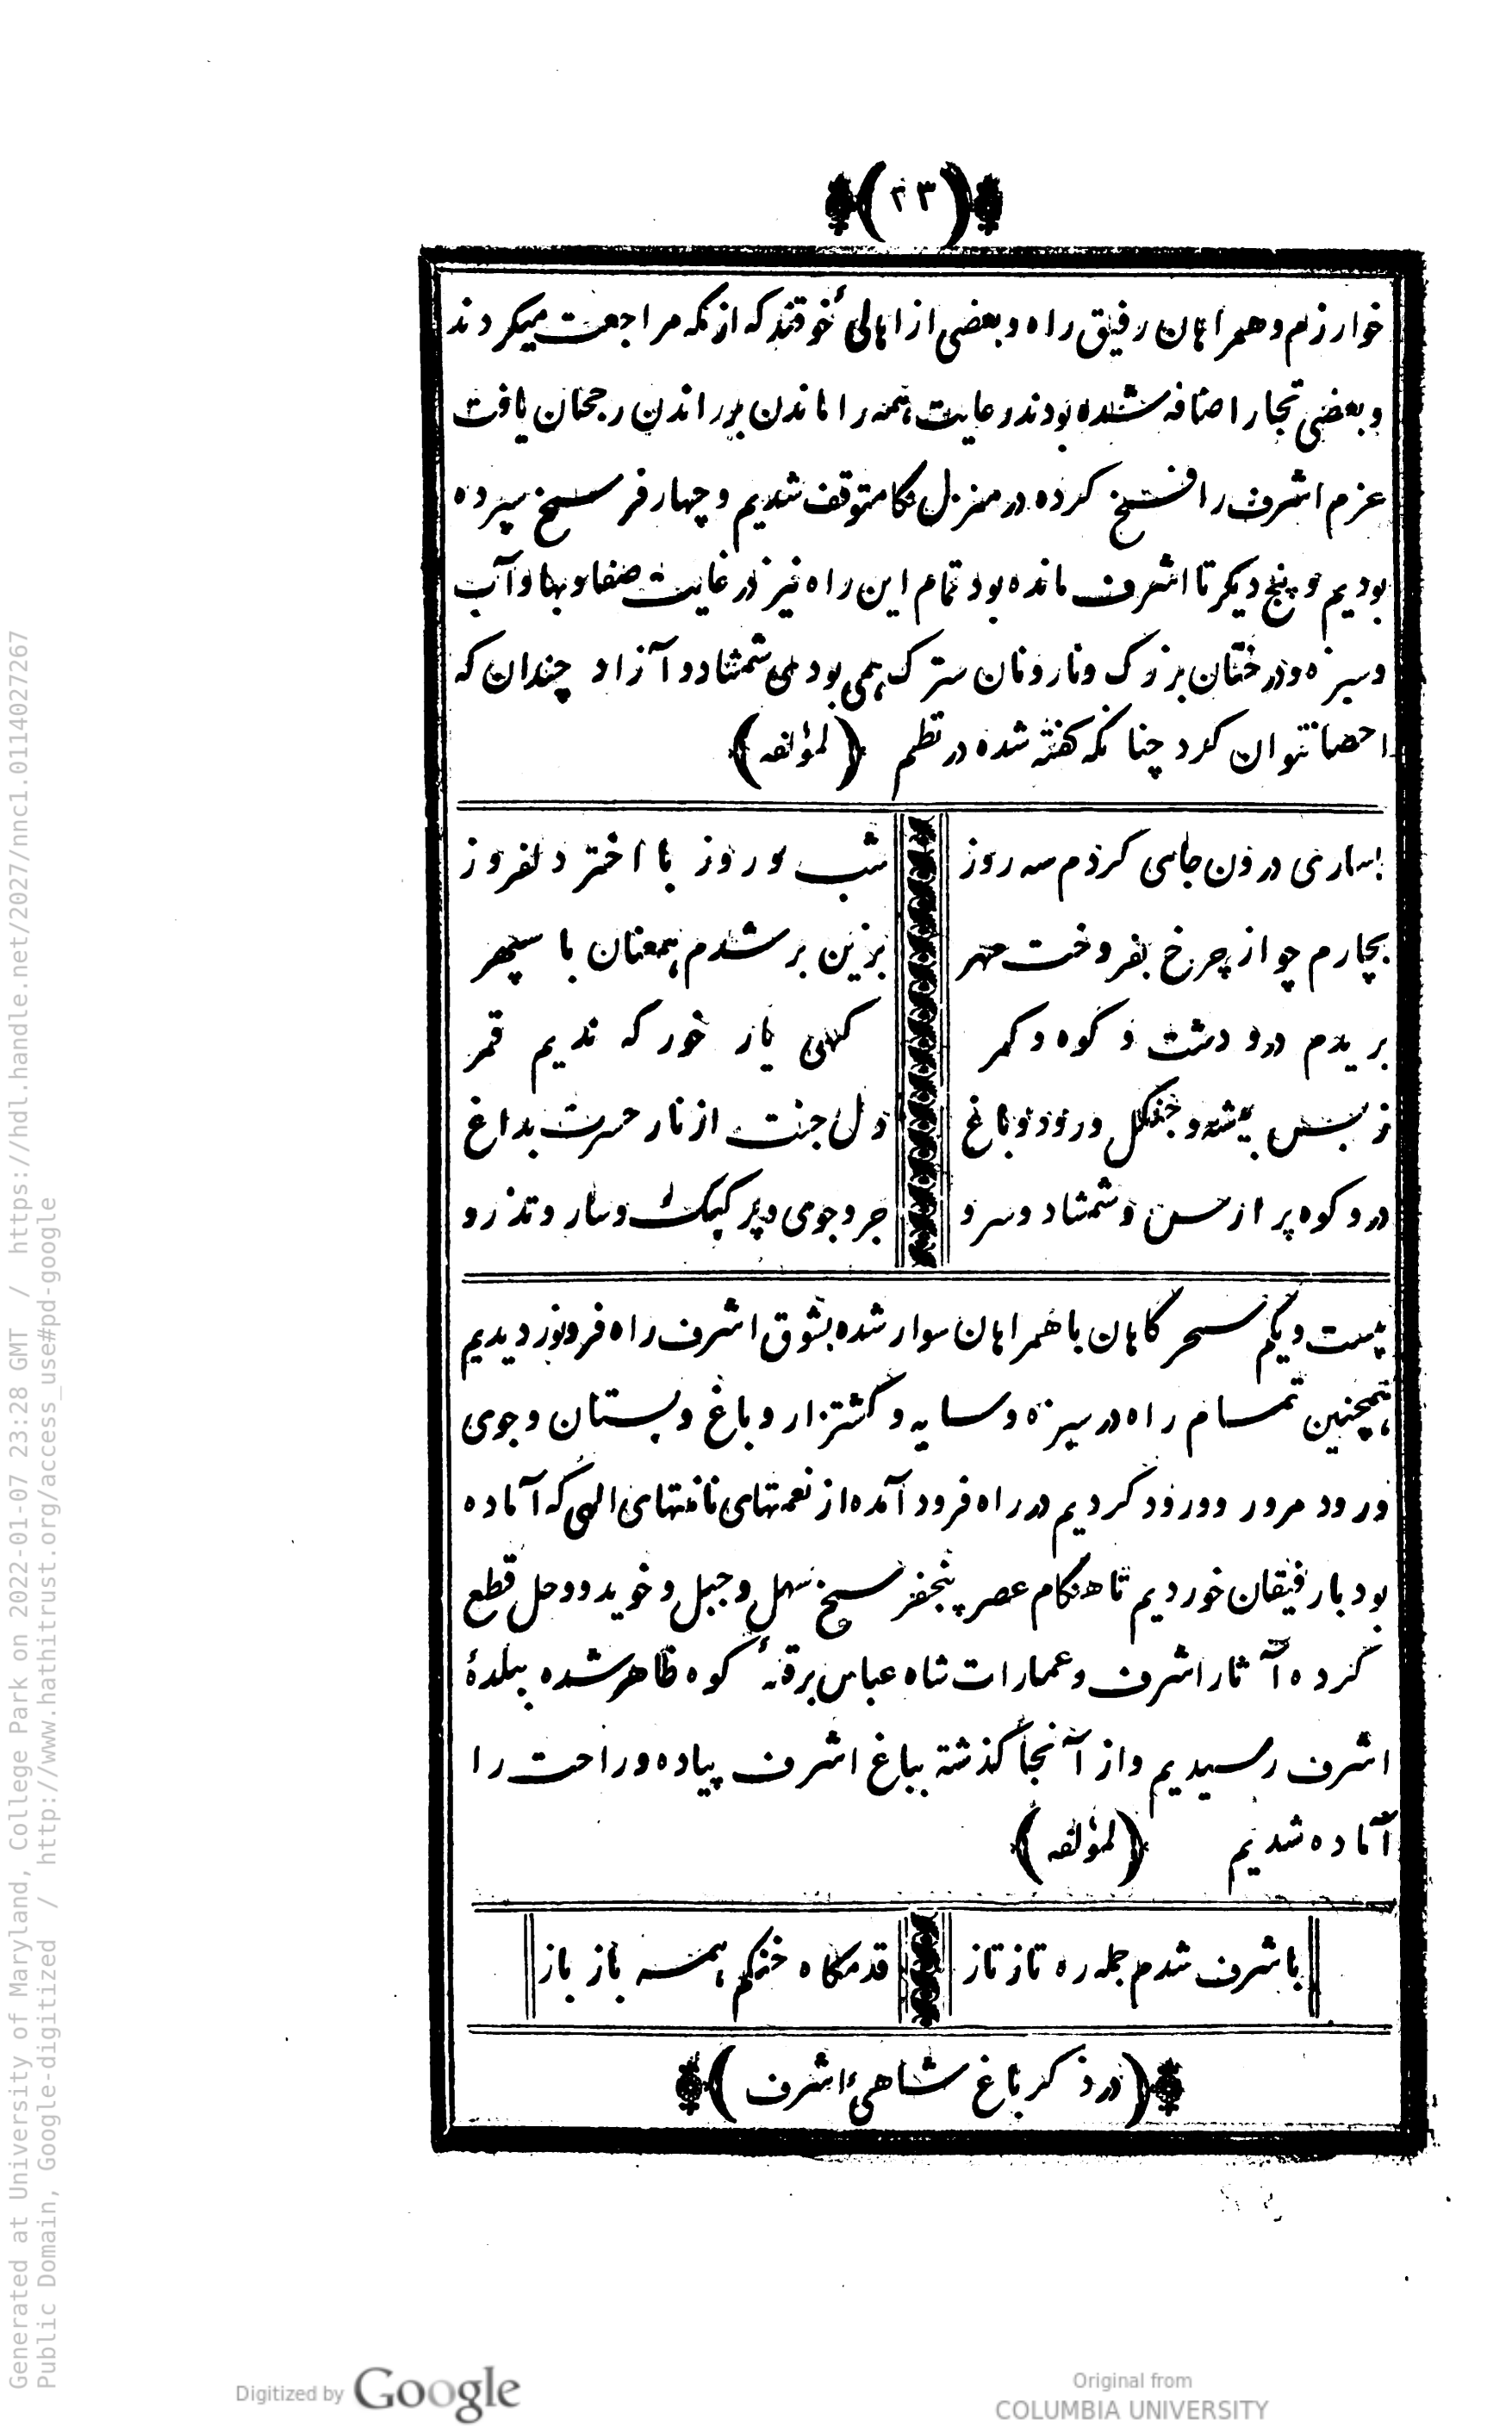 (۲۳)
خوارزم و همراهان رفیق راه و بعضی از اهالیٔ خوقند که از مکه مراجعت میکردند
و بعضی تجار اضافه شده بودند رعایت همه را ماندن بر راندن رجحان یافت
عزم اشرف را فسخ کرده در منزل نکا متوقف شدیم و چهار فرسخ سپرده
بودیم و پنج دیگر تا اشرف مانده بود تمام این راه نیز در غایت صفا و بها و آب
و سبزه و درختان بزرک و نارونان سترک همی بود می شمشاد و آزاد چندان که
احصا نتوان کرد چنانکه کفته شده در نظم (لمؤلفه)
بساری درون جای کردم سه روز
شب و روز با اختر دلفروز
بچارم چو از چرخ بفروخت مهر
بزین بر شدم همعنان با سپهر
بریدم در و دشت و کوه و کمر
کهی یار خور که ندیم قمر
ز بس بیشه و جنکل و رود و باغ
دل جنت از نار حسرت بداغ
در و کوه پر از حسن و شمشاد و سرو
جر و جوی و پر کبک و سار و تذرو
بیست و یکم سحرکاهان با همراهان سوار شده بشوق اشرف راه فرو نوردیدیم
همچنین تمام راه در سبزه و سایه و کشتزار و باغ و بستان و جوی
و رود مرور و ورود کردیم در راه فرود آمده از نعمتهای نامنتهای الهی که آماده
بود با رفیقان خوردیم تا هنکام عصر پنجفرسخ سهل و جبل و خوید و وحل قطع
کرده آثار اشرف و عمارات شاه عباس بر قلهٔ کوه ظاهر شده ببلدهٔ
اشرف رسیدیم و از آنجا کذشته بباغ اشرف پیاده و راحت را
آماده شدیم (لمؤلفه)
باشرف شدم جمله ره تاز تاز
قدمکاه خنکم همه باز باز
(در ذکر باغ شاهیٔ اشرف)
Generated at University of Maryland, College Park on 2022-01-07 23:28 GMT / https://hdl.handle.net/2027/nnc1.0114027267
Public Domain, Google-digitized / http://www.hathitrust.org/access_use#pd-google
Digitized by Google
Original from
COLUMBIA UNIVERSITY